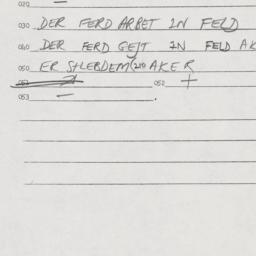 020 —
030 DER FERD ARBET IN FELD
040 DER FERD GEJT IN FELD AK
050 ER STLEBDEM(210 AKER
051 052 +
053 — .